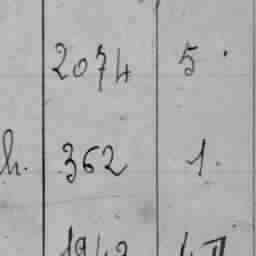 2074 5.
h. 362 1.